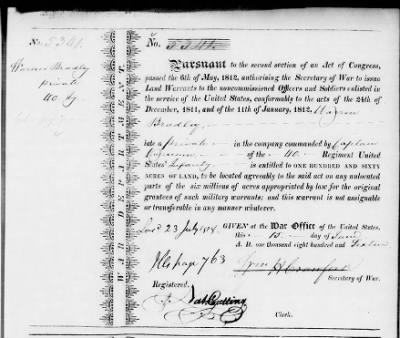 No. 5341.
Warren Bradley
private
40 Ig
No. 5341.
Pursuant to the second section of an Act of Congress,
passed the 6th of May, 1812, authorising the Secretary of War to issue
Land Warrants to the noncommissioned Officers and Soldiers enlisted in
the service of the United States, conformably to the acts of the 24th of
December, 1811, and of the 11th of January, 1812, Warren
Bradley
late a private in the company commanded by Captain
of the 40 Regiment United
States' Infantry is entitled to ONE HUNDRED AND SIXTY
ACRES OF LAND, to be located agreeably to the said act on any unlocated
parts of the six millions of acres appropriated by law for the original
grantees of such military warrants: and this warrant is not assignable
or transferable in any manner whatever.
GIVEN at the War Office of the United States,
23 July
this 13 day of June
A. D. one thousand eight hundred and Sixteen
page 763
Wm H Crawford
Secretary of War.
Registered.
Clerk.
WAR DEPARTMENT.